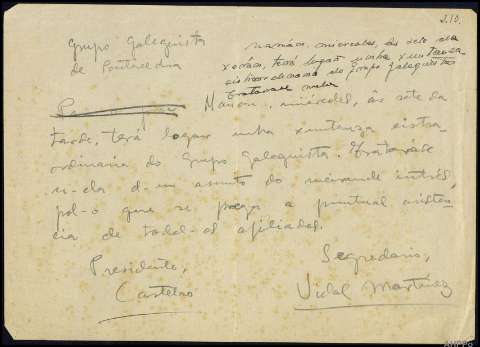 2.10.
Grupo Galeguista
de Pontevedra
Mañán, miércoles, ás sete da
terá logar unha xuntanza
do Grupo Galeguista
Mañán, miércoles, ás sete da
tarde, terá logar unha xuntanza estra-
ordinaria do Grupo Galeguista. Tratarase
n-ela d-un asunto do meirande intrés,
pol-o que se prega a puntual asisten-
cia de todol-os afiliados.
Presidente,
Castelao
Segredario,
Vidal Martínez